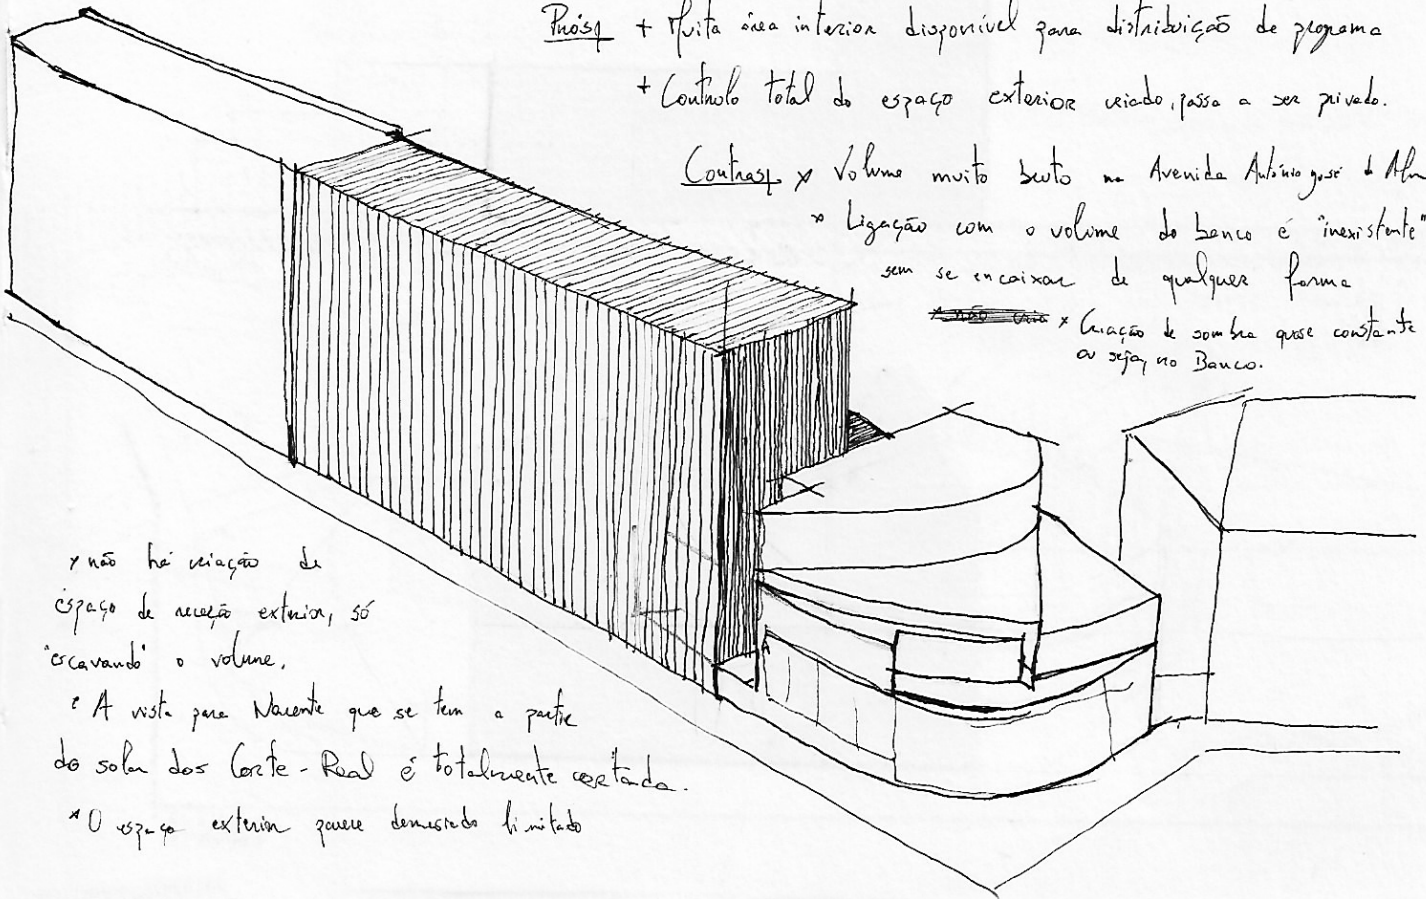 Prós + Muita área interior disponível para distribuição de programa
+ Controlo total do espaço exterior criado, passa a ser privado.
Contras x Volume muito bruto na Avenida António José d Alm
x Ligação com o volume do banco é "inexistente"
sem se encaixar de qualquer forma
x não cria x Criação de sombra quase constante
ou seja, no Banco.
x não há criação de
espaço de receção exterior, só
"escavando" o volume.
A vista para Nascente que se tem a partir
do solar dos Corte-Real é totalmente cortada.
x O espaço exterior parece demasiado limitado